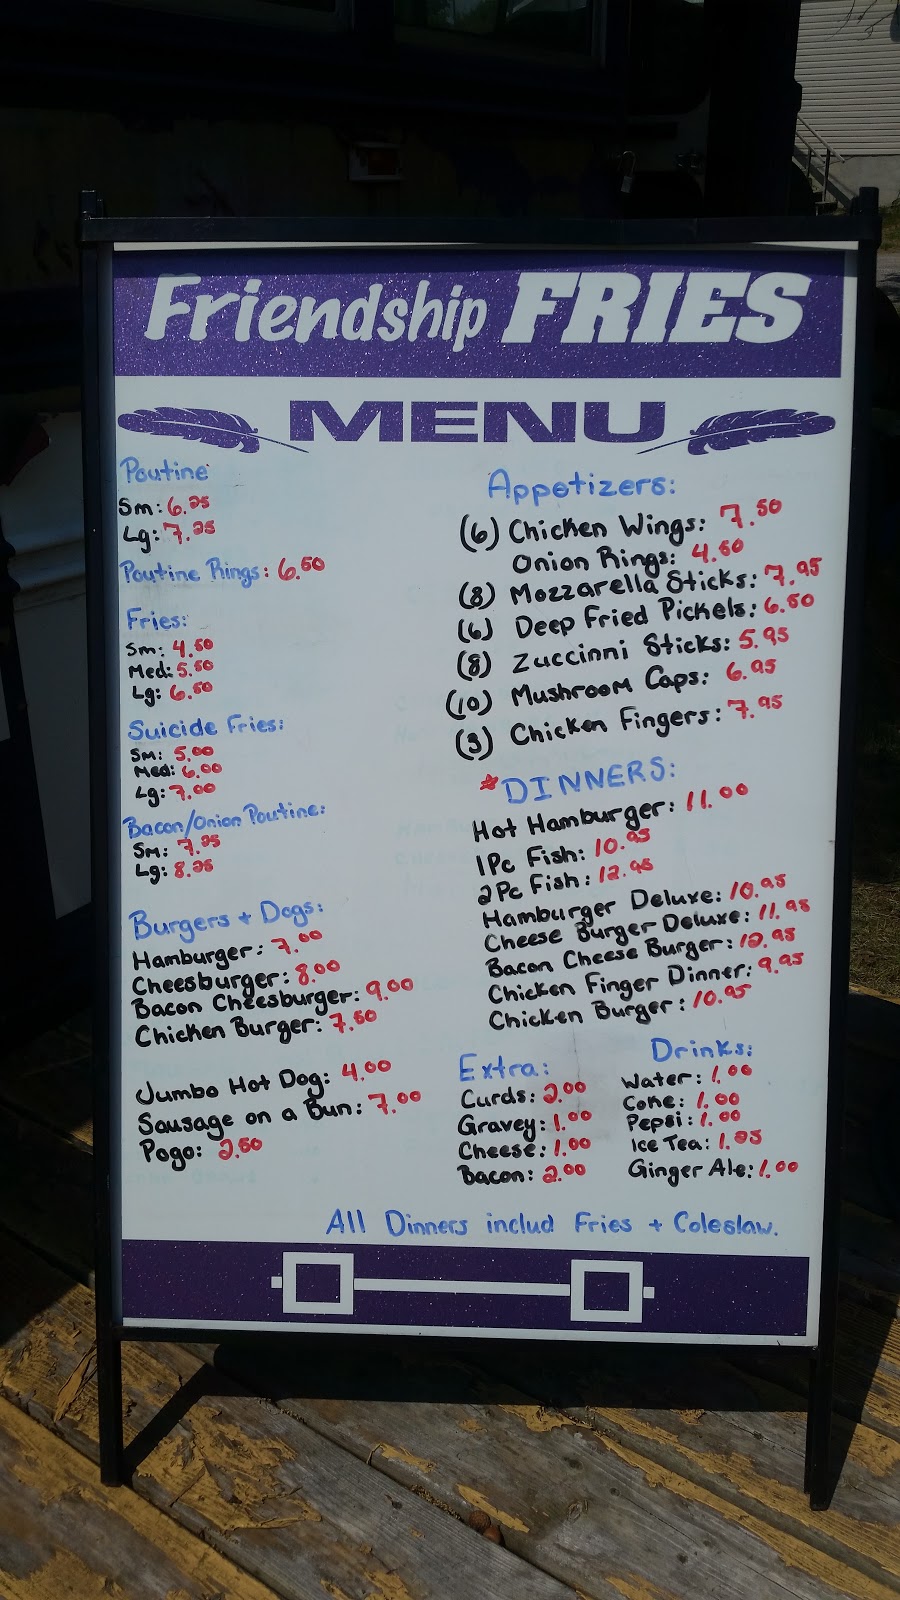 Friendship FRIES
MENU
Poutine
Sm: 6.25
Lg: 7.25
Poutine Rings: 6.50
Fries:
Sm: 4.50
Med: 5.50
Lg: 6.50
Suicide Fries:
Sm: 5.00
Med: 6.00
Lg: 7.00
Bacon/Onion Poutine:
Sm: 7.25
Lg: 8.25
Burgers + Dogs:
Hamburger: 7.00
Cheesburger: 8.00
Bacon Cheesburger: 9.00
Chicken Burger: 7.50
Jumbo Hot Dog: 4.00
Sausage on a Bun: 7.00
Pogo: 2.50
Appetizers:
(6) Chicken Wings: 7.50
Onion Rings: 4.50
(8) Mozzarella Sticks: 7.95
(6) Deep Fried Pickels: 6.50
(8) Zuccinni Sticks: 5.95
(10) Mushroom Caps: 6.95
(3) Chicken Fingers: 7.95
*DINNERS:
Hot Hamburger: 11.00
1Pc Fish: 10.95
2Pc Fish: 12.95
Hamburger Deluxe: 10.95
Cheese Burger Deluxe: 11.95
Bacon Cheese Burger: 12.95
Chicken Finger Dinner: 9.95
Chicken Burger: 10.95
Extra:
Curds: 2.00
Gravey: 1.00
Cheese: 1.00
Bacon: 2.00
Drinks:
Water: 1.00
Coke: 1.00
Pepsi: 1.00
Ice Tea: 1.25
Ginger Ale: 1.00
All Dinners includ Fries + Coleslaw.